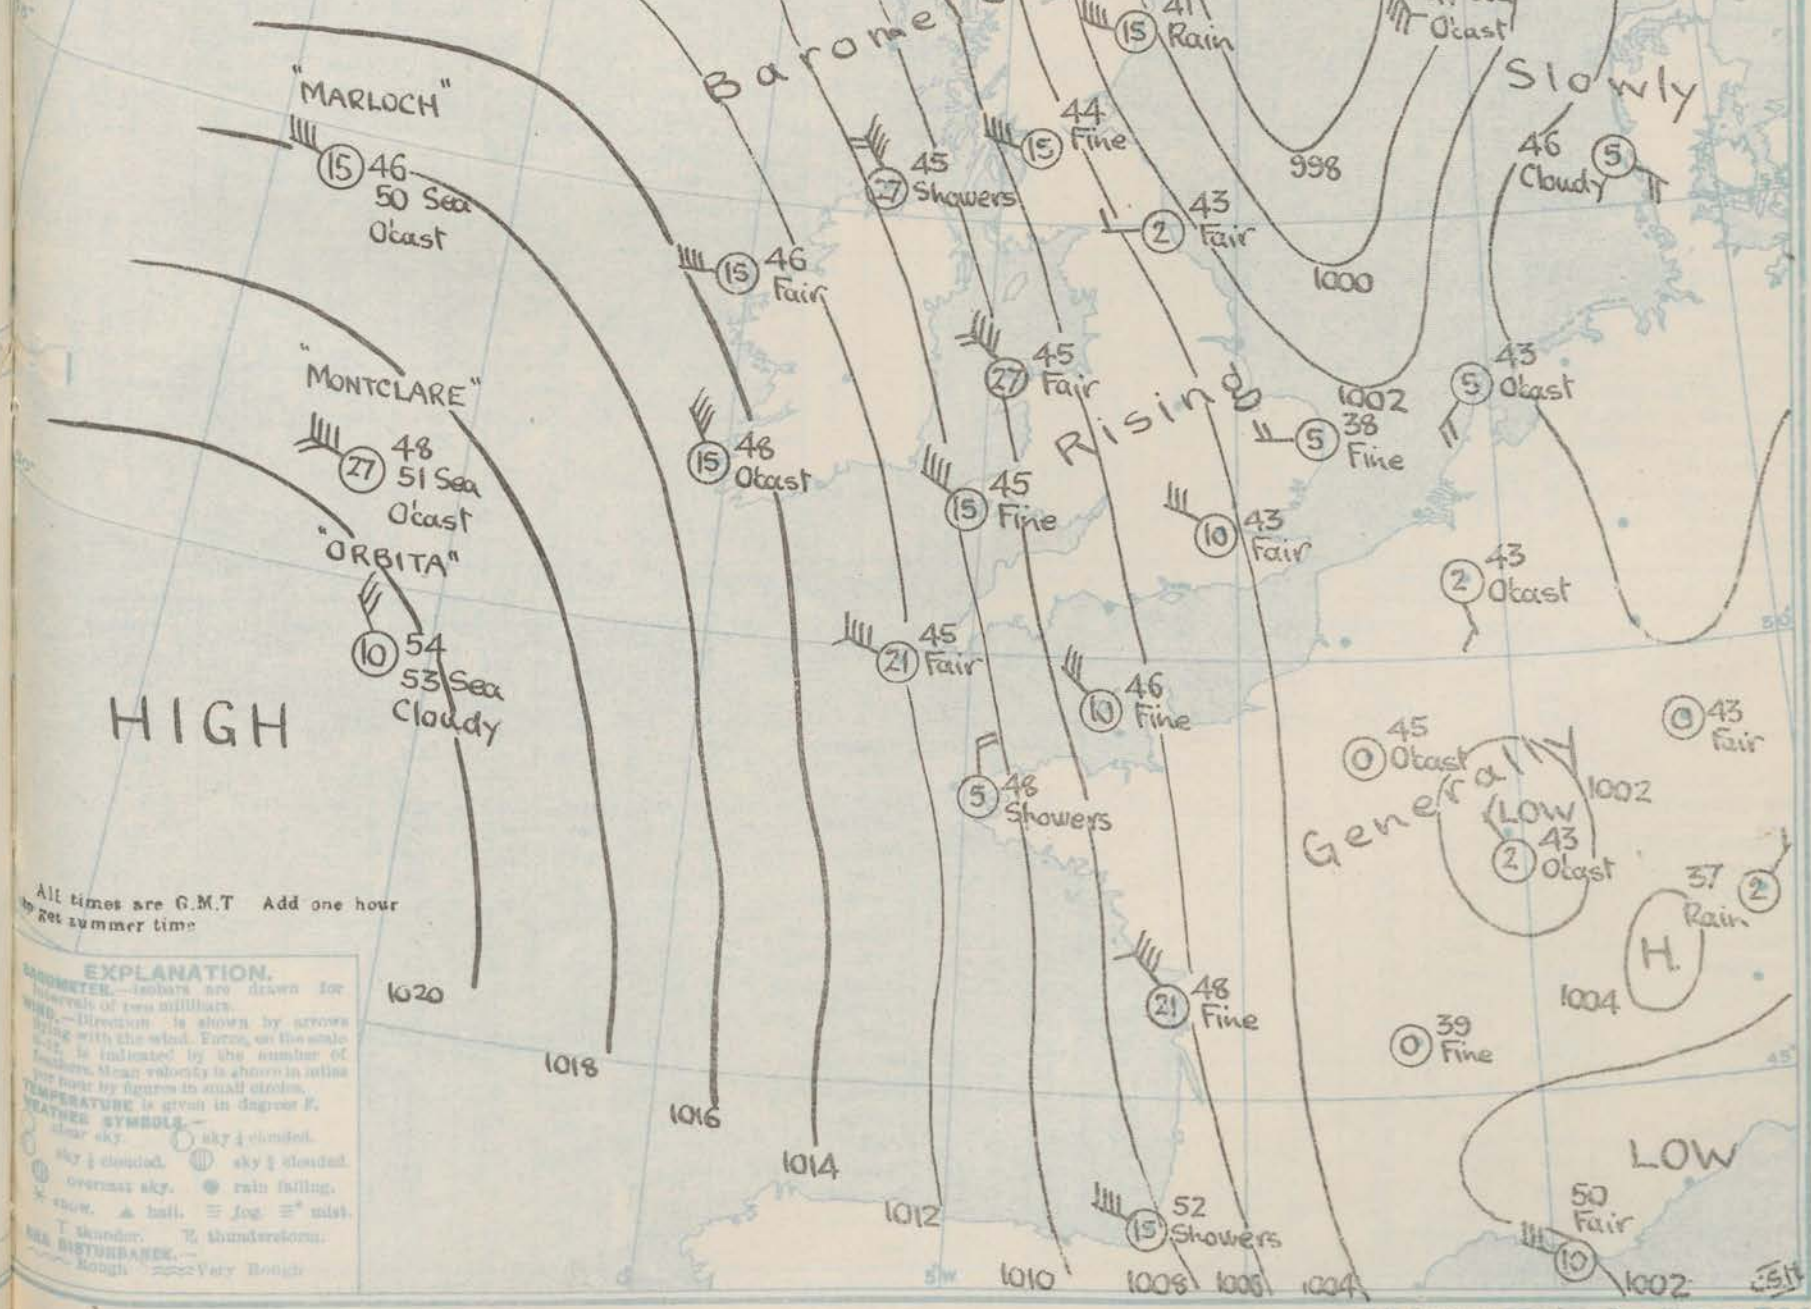 Barome
Slowly
15
41
Rain
O'cast
"MARLOCH"
15 46
50 Sea
O'cast
27
45
Showers
15
44
Fine
998
46
Cloudy
5
2
43
Fair
1000
15
46
Fair
27
45
Fair
Rising
1002
5
43
Ocast
5
38
Fine
"MONTCLARE"
27
48
51 Sea
O'cast
15
48
Ocast
15
45
Fine
10
43
Fair
2
43
Ocast
50°
"ORBITA"
10 54
53 Sea
Cloudy
21
45
Fair
10
46
Fine
HIGH
5
48
Showers
0
45
Ocast
0
43
Fair
General
1002
LOW
2
43
Ocast
37
Rain
2
H.
1004
All times are G.M.T Add one hour
to get summer time
21
48
Fine
0
39
Fine
45°
EXPLANATION.
BAROMETER.—Isobars are drawn for
intervals of two millibars.
WIND.—Direction is shown by arrows
flying with the wind. Force, on the scale
is indicated by the number of
feathers. Mean velocity is shown in miles
per hour by figures in small circles.
TEMPERATURE is given in degrees F.
WEATHER SYMBOLS.—
clear sky. sky ¼ clouded.
sky ½ clouded. sky ¾ clouded.
overcast sky. rain falling.
snow. hail. fog. mist.
T thunder. thunderstorm.
SEA DISTURBANCE.—
Rough Very Rough
1020
1018
1016
1014
1012
1010
1008
1006
1004
15
52
Showers
LOW
50
Fair
10
1002
5°W